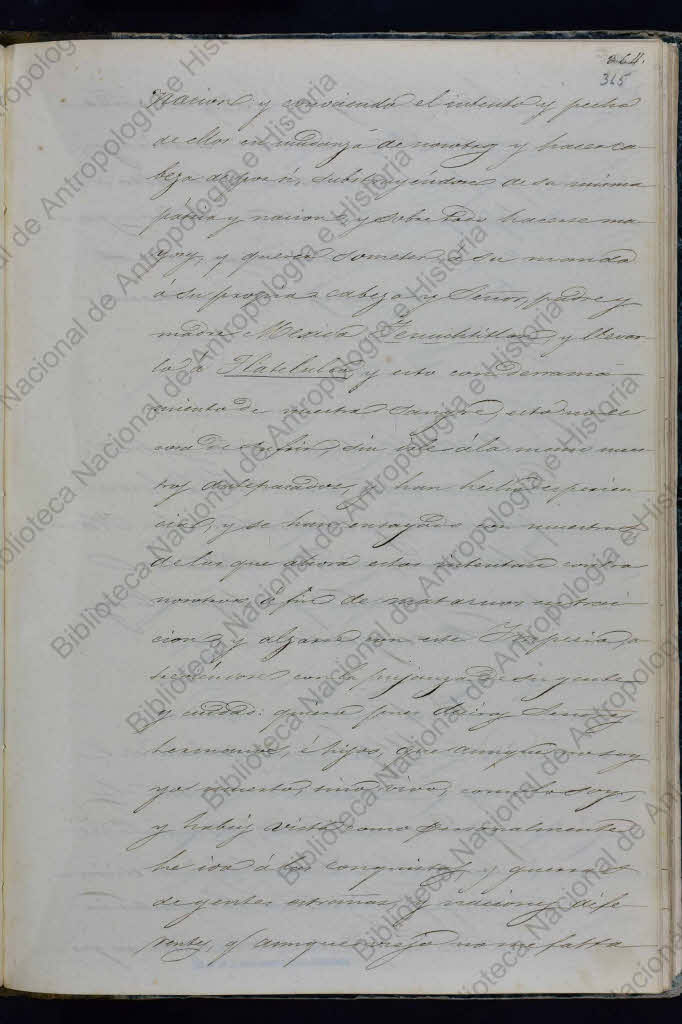 364.
365
Nacion y conociendo el intento y pecho
de ellos en mudanza de nosotros y hacer ca-
beza de por si, substrayéndose de su misma
pátria y nacion, y sobre todo hacerse ma-
yor, y querer someter á su mando
á su propria cabeza y Señor, padre y
madre Mexico Tenuchtitlan, y llevar-
la á Tlatelulco y esto con derrama-
miento de nuestra sangre, esto no es
cosa de sufrir, sin
han hecho esperien-
cia, y se han ensayado en nuestras
de lo que ahora estos intentan contra
nosotros á fin de matarnos en trai-
cion, y alzarse con este Imperio, a-
treviéndose con la pujanza de su gente
y ciudad: quiero pues deciros Señores
hermanos, é hijos, que aunque no soy
yo muerto, sino vivo, como lo soy,
y habeis visto como personalmente
he ido á las conquistas y guerras
de gentes estrañas, y naciones dife-
rentes, q.e aunque viejo no me falta
Biblioteca Nacional de Antropología e Historia